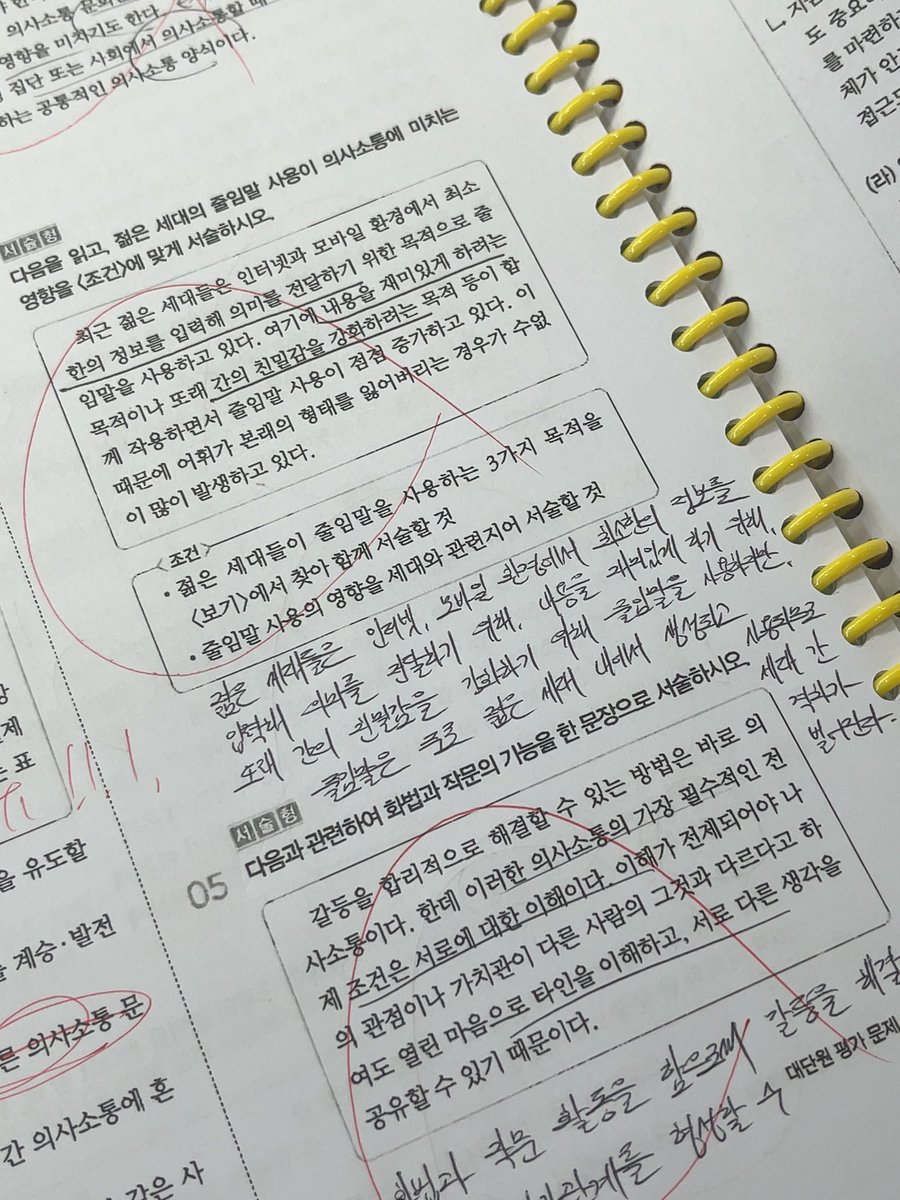 의사소통 문화
영향을 미치기도 한다.
집단 또는 사회에서 의사소통할 때
하는 공통적인 의사소통 양식이다.
서술형
다음을 읽고, 젊은 세대의 줄임말 사용이 의사소통에 미치는
영향을 <조건>에 맞게 서술하시오.
최근 젊은 세대들은 인터넷과 모바일 환경에서 최소
한의 정보를 입력해 의미를 전달하기 위한 목적으로 줄
임말을 사용하고 있다. 여기에 내용을 재미있게 하려는
목적이나 또래 간의 친밀감을 강화하려는 목적 등이 함
께 작용하면서 줄임말 사용이 점점 증가하고 있다. 이
때문에 어휘가 본래의 형태를 잃어버리는 경우가 수없
이 많이 발생하고 있다.
<조건>
• 젊은 세대들이 줄임말을 사용하는 3가지 목적을
<보기>에서 찾아 함께 서술할 것
• 줄임말 사용의 영향을 세대와 관련지어 서술할 것
젊은 세대들은 인터넷, 모바일 환경에서 최소한의 정보를
입력해 의미를 전달하기 위해, 내용을 재미있게 하기 위해,
또래 간의 친밀감을 강화하기 위해 줄임말을 사용하지만,
줄임말은 주로 젊은 세대 내에서 생성되고
사용되므로
세대 간
격차가
벌어진다.
서술형
05 다음과 관련하여 화법과 작문의 기능을 한 문장으로 서술하시오.
갈등을 합리적으로 해결할 수 있는 방법은 바로 의
사소통이다. 한데 이러한 의사소통의 가장 필수적인 전
제 조건은 서로에 대한 이해이다. 이해가 전제되어야 나
의 관점이나 가치관이 다른 사람의 그것과 다르다고 하
여도 열린 마음으로 타인을 이해하고, 서로 다른 생각을
공유할 수 있기 때문이다.
화법과 작문 활동을 함으로써 갈등을 해결
관계를 형성할 수
대단원 평가 문제
제
는 표
을 유도할
계승·발전
른 의사소통 문
간 의사소통에 혼
같은 사
도 중요
를 마련하
체가 안
접근
(라)